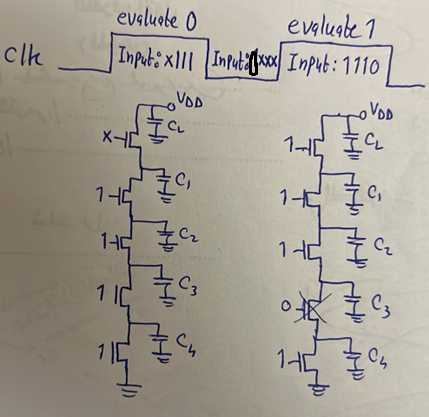 evaluate 0
evaluate 1
Clk
Input: x111
Input: 0xxx
Input: 1110
VDD
CL
x
C1
1
C2
1
C3
1
C4
1
VDD
CL
1
C1
1
C2
1
C3
0
C4
1